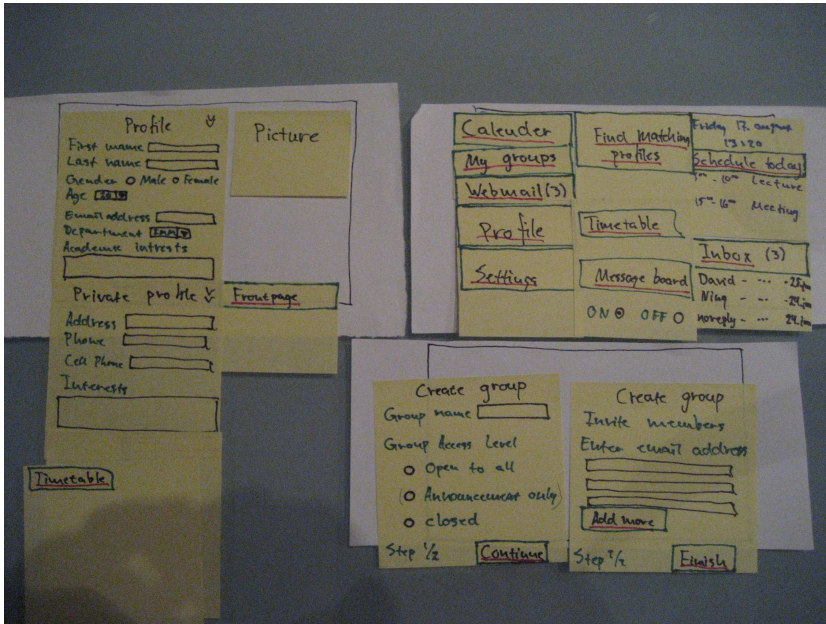 Profile
First name
Last name
Gender Male Female
Age 20
Email address
Department IMM
Academic intrests
Private profile
Address
Phone
Cell Phone
Interests
Timetable
Picture
Frontpage
Calender
My groups
Webmail (3)
Profile
Settings
Find matching
profiles
Timetable
Message board
ON OFF
Friday 17. august
13:20
Schedule today
Lecture
15⁰⁰-16⁰⁰ Meeting
Inbox (3)
David - ... -25.jan
Ning - ... -24.jan
noreply - ... 24.jan
Create group
Group name
Group Access Level
Open to all
(Announcement only)
closed
Step 1/2 Continue
Create group
Invite members
Enter email address
Add more
Step 2/2 Finish